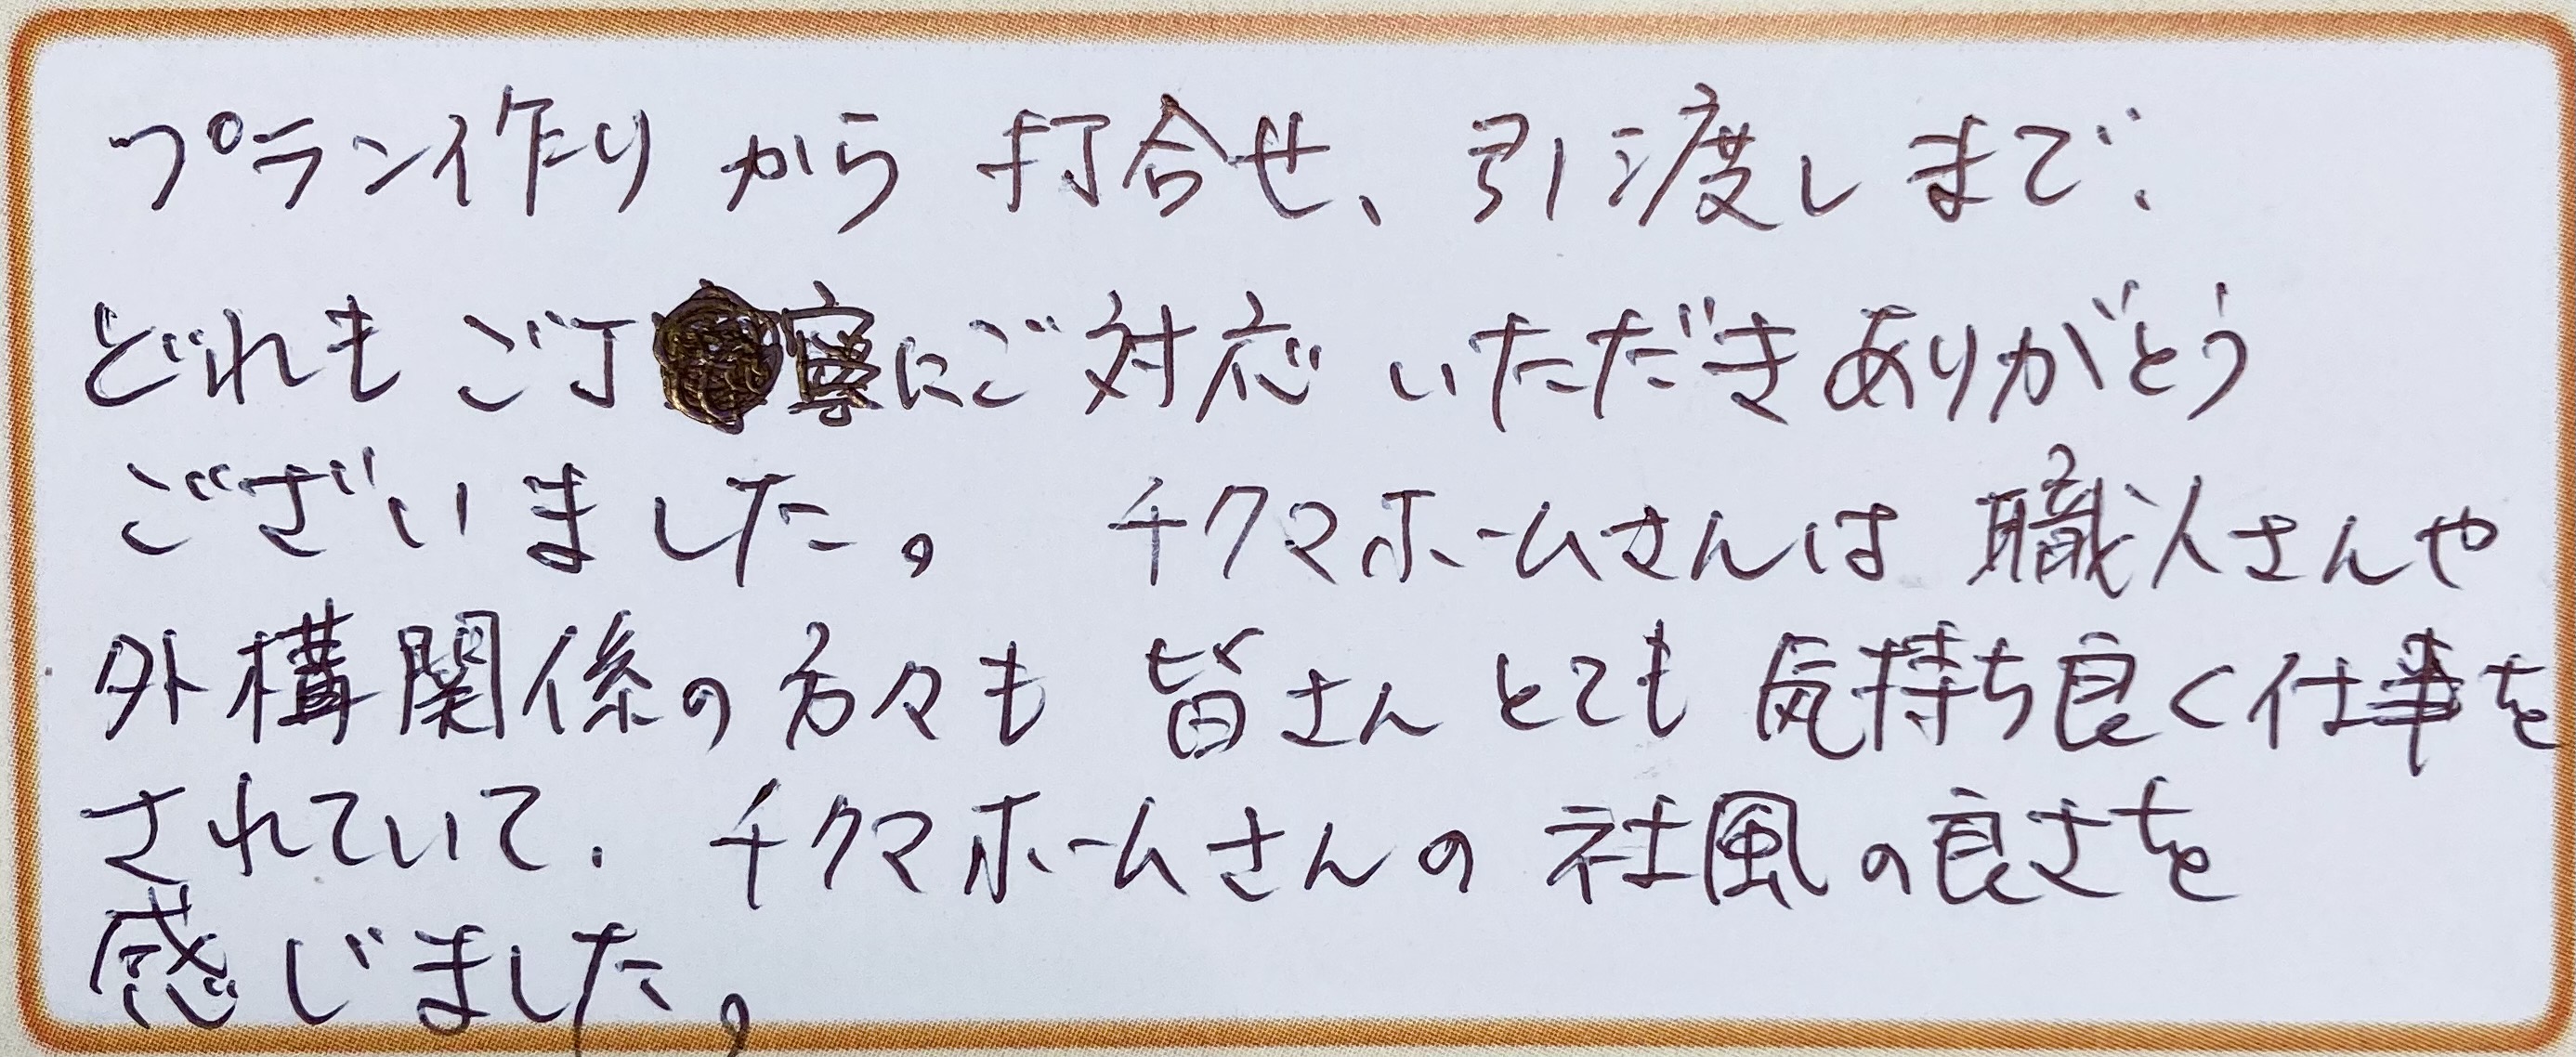 プラン作りから打合せ、引渡しまで、
どれもご丁寧にご対応いただきありがとう
ございました。 チクマホームさんは職人さんや
外構関係の方々も皆さんとても気持ち良く仕事を
されていて、チクマホームさんの社風の良さを
感じました。